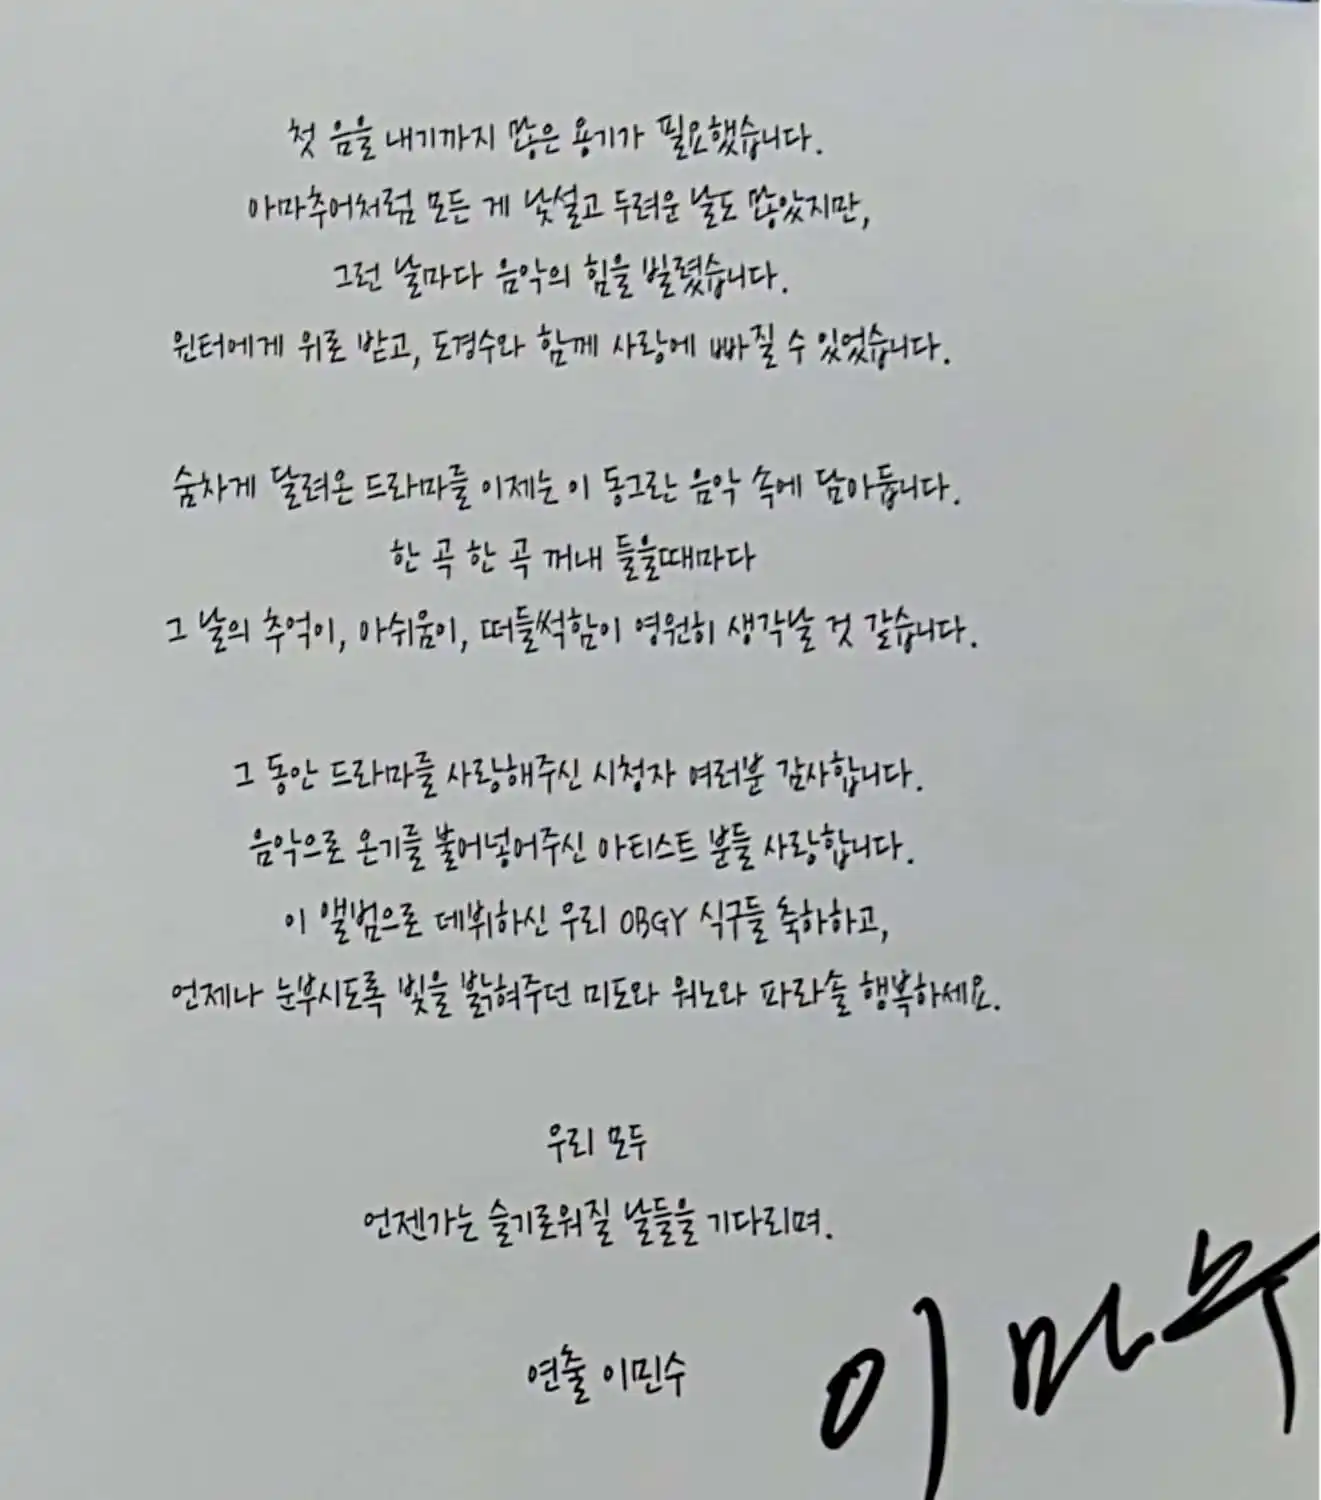 첫 음을 내기까지 많은 용기가 필요했습니다.
아마추어처럼 모든 게 낯설고 두려운 날도 많았지만,
그런 날마다 음악의 힘을 빌렸습니다.
윈터에게 위로 받고, 도경수와 함께 사랑에 빠질 수 있었습니다.
숨차게 달려온 드라마를 이제는 이 동그란 음악 속에 담아둡니다.
한 곡 한 곡 꺼내 들을때마다
그 날의 추억이, 아쉬움이, 떠들썩함이 영원히 생각날 것 같습니다.
그 동안 드라마를 사랑해주신 시청자 여러분 감사합니다.
음악으로 온기를 불어넣어주신 아티스트 분들 사랑합니다.
이 앨범으로 데뷔하신 우리 OBGY 식구들 축하하고,
언제나 눈부시도록 빛을 밝혀주던 미도와 워노와 파라솔 행복하세요.
우리 모두
언젠가는 슬기로워질 날들을 기다리며.
연출 이민수
이민수